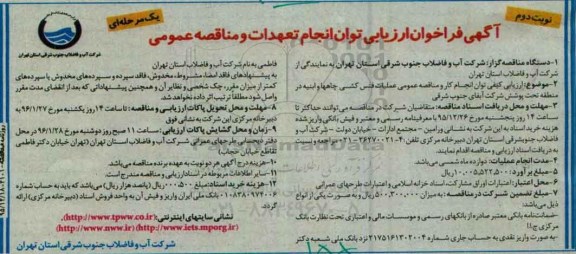 نوبت دوم
آگهی فراخوان ارزیابی توان انجام تعهدات و مناقصه عمومی
یک مرحله‌ای
شرکت آب و فاضلاب جنوب شرقی استان تهران
۱-دستگاه مناقصه گزار: شرکت آب و فاضلاب جنوب شرقی استان تهران به نمایندگی از
شرکت آب و فاضلاب استان تهران
۲-موضوع: ارزیابی کیفی توان انجام کار و مناقصه عمومی عملیات فنس کشی چاهها و ابنیه در
منطقه تحت پوشش شرکت آبفای جنوب شرقی
۳-مهلت و محل دریافت اسناد مناقصه: متقاضیان شرکت در مناقصه می‌توانند حداکثر تا
ساعت ۱۴ روز پنجشنبه مورخ ۹۵/۱۲/۱۶ با ارائه معرفینامه رسمی و معتبر و فیش بانکی واریز شده
هزینه خرید اسناد به این شرکت به نشانی ورامین - مجتمع ادارات - خیابان دولت - شرکت آب و
فاضلاب جنوبشرقی استان تهران دبیرخانه مرکزی تلفن:
به دریافت اسناد ارزیابی مناقصه اقدام نمایند.
۴-مدت انجام عملیات: دوازده ماه شمسی می‌باشد.
۵-مبلغ برآورد: ۱۰،۰۰۵،۵۲۲،۵۰۰ ریال
۶-محل اعتبار: اعتبارات اوراق مشارکت، اسناد خزانه اسلامی و اعتبارات طرحهای عمرانی
۷-مبلغ تضمین شرکت در مناقصه: به میزان ۵۰۰،۳۰۰،۰۰۰ ریال و به صورت یکی از انواع
ذیل می‌باشد:
-ضمانتنامه بانکی معتبر صادره از بانکهای رسمی و موسسات مالی و اعتباری تحت نظارت بانک
مرکزی ج.ا.ا
-به صورت واریز نقدی به حساب جاری شماره ۲۱۷۵۱۶۱۳۰۲۰۰۴ نزد بانک ملی شعبه دکتر
فاطمی به نام شرکت آب و فاضلاب استان تهران
به پیشنهادهای فاقد امضا، مشروط، مخدوش، فاقد سپرده و سپرده‌های مخدوش یا سپرده‌های
کمتر از میزان مقرر، چک شخصی و نظایر آن و همچنین پیشنهاداتی که بعد از انقضای مدت مقرر
واصل شود مطلقا ترتیب اثر داده نخواهد شد.
۸-مهلت و محل تحویل پاکات ارزیابی و مناقصه: تا ساعت ۱۴ روز یکشنبه مورخ ۹۶/۱/۲۷ به
دبیرخانه مرکزی این شرکت به نشانی فوق
۹-زمان و محل گشایش پاکات ارزیابی: ساعت ۱۱ صبح روز دوشنبه مورخ ۹۶/۱/۲۸ در محل
دفتر پشتیبانی طرحهای عمرانی شرکت آب و فاضلاب استان تهران (تهران خیابان دکتر فاطمی
تقاطع خیابان حجاب)
۱۰-هزینه درج آگهی هر دو نوبت به عهده برنده مناقصه می‌باشد.
۱۱-سایر اطلاعات مربوطه در اسناد ارزیابی و مناقصه مندرج است.
۱۲-هزینه خرید اسناد: مبلغ ۵۰۰،۰۰۰ ریال (پانصد هزار ریال) می‌باشد که باید به حساب شماره
بانک ملی ایران واریز و فیش آن به واحد فروش اسناد (دبیرخانه مرکزی) ارائه
گردد.
نشانی سایتهای اینترنتی: (http://www.tpww.co.ir)،
(http://www.nww.ir) (http://www.iets.mporg.ir)
شرکت آب و فاضلاب جنوب شرقی استان تهران